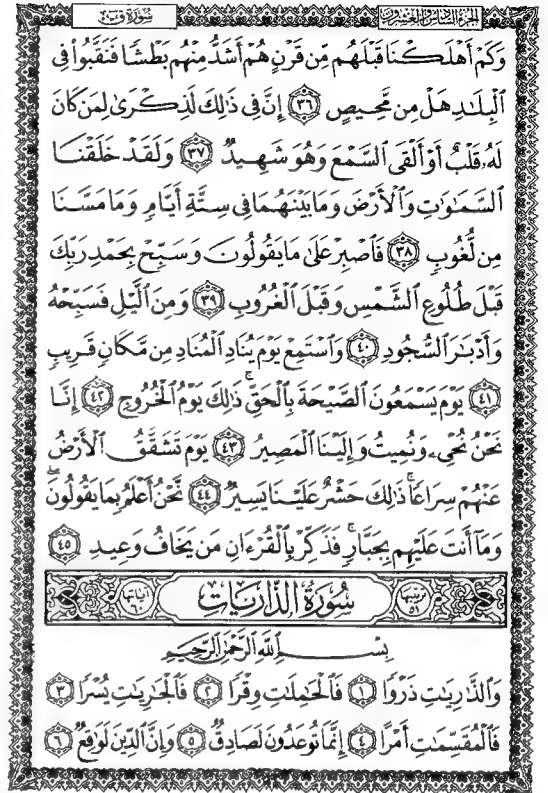 سُورَةُ ق ٥٠ الجُزءُ السَّادِسُ وَالعِشرُونَ
وَكَمْ أَهْلَكْنَا قَبْلَهُم مِّن قَرْنٍ هُمْ أَشَدُّ مِنْهُم بَطْشًا فَنَقَّبُوا۟ فِى
ٱلْبِلَٰدِ هَلْ مِن مَّحِيصٍ ٣٦ إِنَّ فِى ذَٰلِكَ لَذِكْرَىٰ لِمَن كَانَ
لَهُۥ قَلْبٌ أَوْ أَلْقَى ٱلسَّمْعَ وَهُوَ شَهِيدٌ ٣٧ وَلَقَدْ خَلَقْنَا
ٱلسَّمَٰوَٰتِ وَٱلْأَرْضَ وَمَا بَيْنَهُمَا فِى سِتَّةِ أَيَّامٍ وَمَا مَسَّنَا
مِن لُّغُوبٍ ٣٨ فَٱصْبِرْ عَلَىٰ مَا يَقُولُونَ وَسَبِّحْ بِحَمْدِ رَبِّكَ
قَبْلَ طُلُوعِ ٱلشَّمْسِ وَقَبْلَ ٱلْغُرُوبِ ٣٩ وَمِنَ ٱلَّيْلِ فَسَبِّحْهُ
وَأَدْبَٰرَ ٱلسُّجُودِ ٤٠ وَٱسْتَمِعْ يَوْمَ يُنَادِ ٱلْمُنَادِ مِن مَّكَانٍ قَرِيبٍ
٤١ يَوْمَ يَسْمَعُونَ ٱلصَّيْحَةَ بِٱلْحَقِّ ۚ ذَٰلِكَ يَوْمُ ٱلْخُرُوجِ ٤٢ إِنَّا
نَحْنُ نُحْىِۦ وَنُمِيتُ وَإِلَيْنَا ٱلْمَصِيرُ ٤٣ يَوْمَ تَشَقَّقُ ٱلْأَرْضُ
عَنْهُمْ سِرَاعًا ۚ ذَٰلِكَ حَشْرٌ عَلَيْنَا يَسِيرٌ ٤٤ نَّحْنُ أَعْلَمُ بِمَا يَقُولُونَ ۖ
وَمَآ أَنتَ عَلَيْهِم بِجَبَّارٍ ۖ فَذَكِّرْ بِٱلْقُرْءَانِ مَن يَخَافُ وَعِيدِ ٤٥
ترتيبها ٥١ سُورَةُ الذَّارِيَاتِ آياتها ٦٠
بِسْمِ ٱللَّهِ ٱلرَّحْمَٰنِ ٱلرَّحِيمِ
وَٱلذَّٰرِيَٰتِ ذَرْوًا ١ فَٱلْحَٰمِلَٰتِ وِقْرًا ٢ فَٱلْجَٰرِيَٰتِ يُسْرًا ٣
فَٱلْمُقَسِّمَٰتِ أَمْرًا ٤ إِنَّمَا تُوعَدُونَ لَصَادِقٌ ٥ وَإِنَّ ٱلدِّينَ لَوَٰقِعٌ ٦